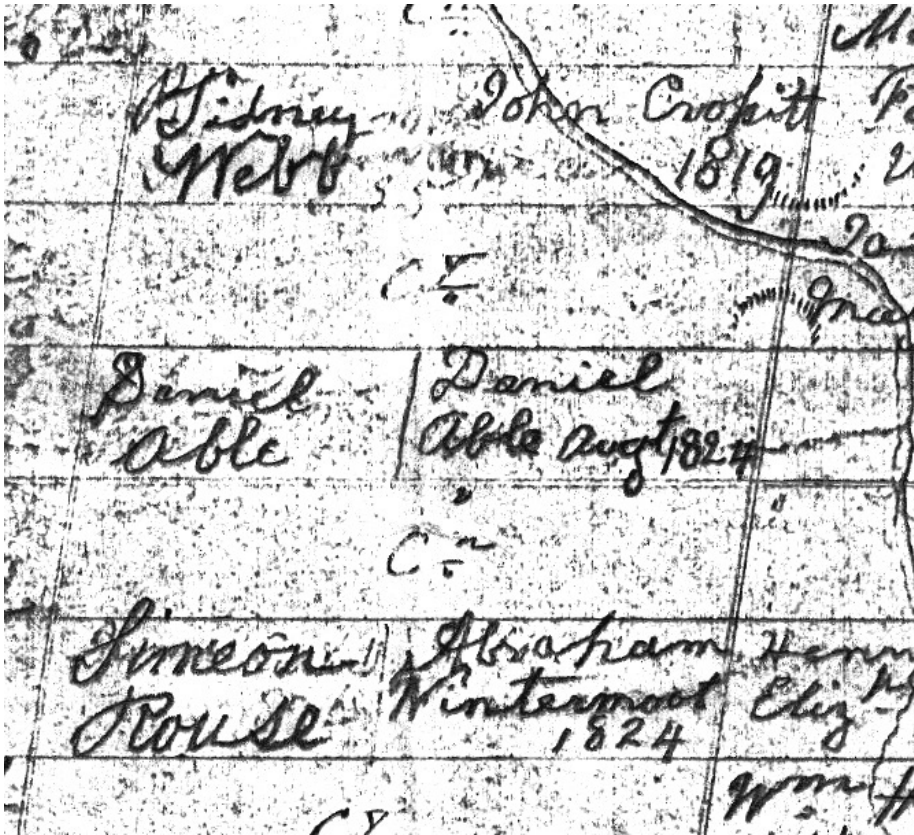 Sidney
Webb
John Cropitt
1819
Cr
Daniel
Able
Daniel
Able Augt 1824
Cn
Simeon
Rouse
Abraham
Wintermoot
1824
Eliz
Wm H
Cr